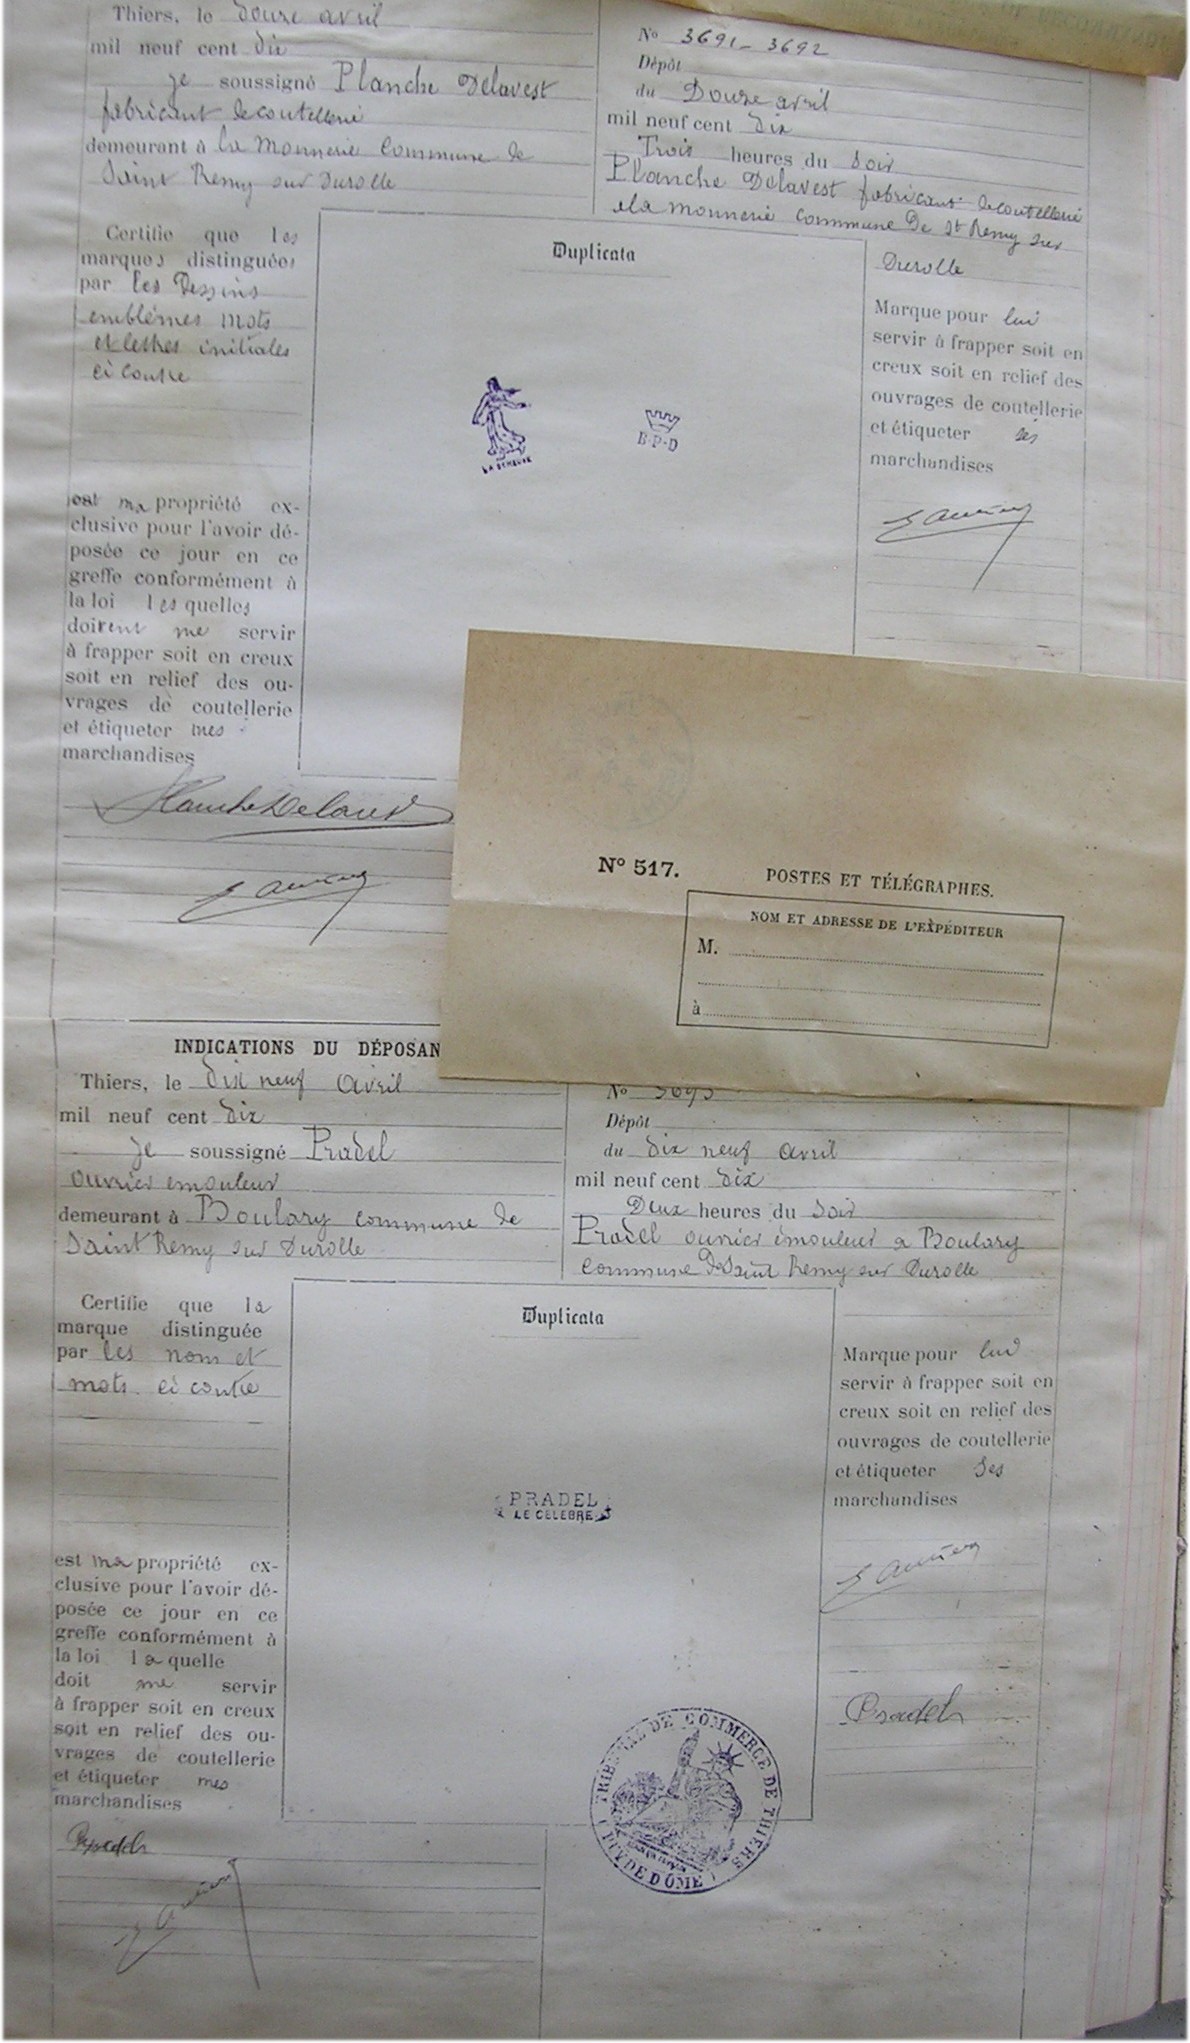 Thiers, le Douze avril
mil neuf cent Dix
Je soussigné Planche Delavest
fabricant de coutellerie
demeurant à la Monnerie Commune de
Saint Remy sur Durolle
Certifie que les
marques distinguées
par les Dessins
emblèmes mots
et lettres initiales
ci contre
est ma propriété ex-
clusive pour l'avoir dé-
posée ce jour en ce
greffe conformément à
la loi lesquelles
doivent me servir
à frapper soit en creux
soit en relief des ou-
vrages de coutellerie
et étiqueter mes
marchandises
Planche Delavest
Duplicata
LA SEMEUSE
B-P-D
No 3691-3692
Dépôt
du Douze avril
mil neuf cent Dix
Trois heures du Soir
Planche Delavest fabricant de coutellerie
à la Monnerie Commune De St Remy sur
Durolle
Marque pour lui
servir à frapper soit en
creux soit en relief des
ouvrages de coutellerie
et étiqueter ses
marchandises
No 517.
POSTES ET TÉLÉGRAPHES.
NOM ET ADRESSE DE L'EXPÉDITEUR
M.
à
INDICATIONS DU DÉPOSAN
Thiers, le Dix neuf Avril
mil neuf cent Dix
Je soussigné Pradel
Ouvrier émouleur
demeurant à Boulary commune de
Saint Remy sur Durolle
Certifie que la
marque distinguée
par les nom et
mots ci contre
est ma propriété ex-
clusive pour l'avoir dé-
posée ce jour en ce
greffe conformément à
la loi laquelle
doit me servir
à frapper soit en creux
soit en relief des ou-
vrages de coutellerie
et étiqueter mes
marchandises
Pradel
Duplicata
PRADEL
LE CELEBRE
TRIBUNAL DE COMMERCE DE THIERS
(PUY DE DÔME)
No 3693
Dépôt
du Dix neuf Avril
mil neuf cent Dix
Deux heures du Soir
Pradel ouvrier émouleur a Boulary
Commune De Saint Remy sur Durolle
Marque pour lui
servir à frapper soit en
creux soit en relief des
ouvrages de coutellerie
et étiqueter Ses
marchandises
Pradel